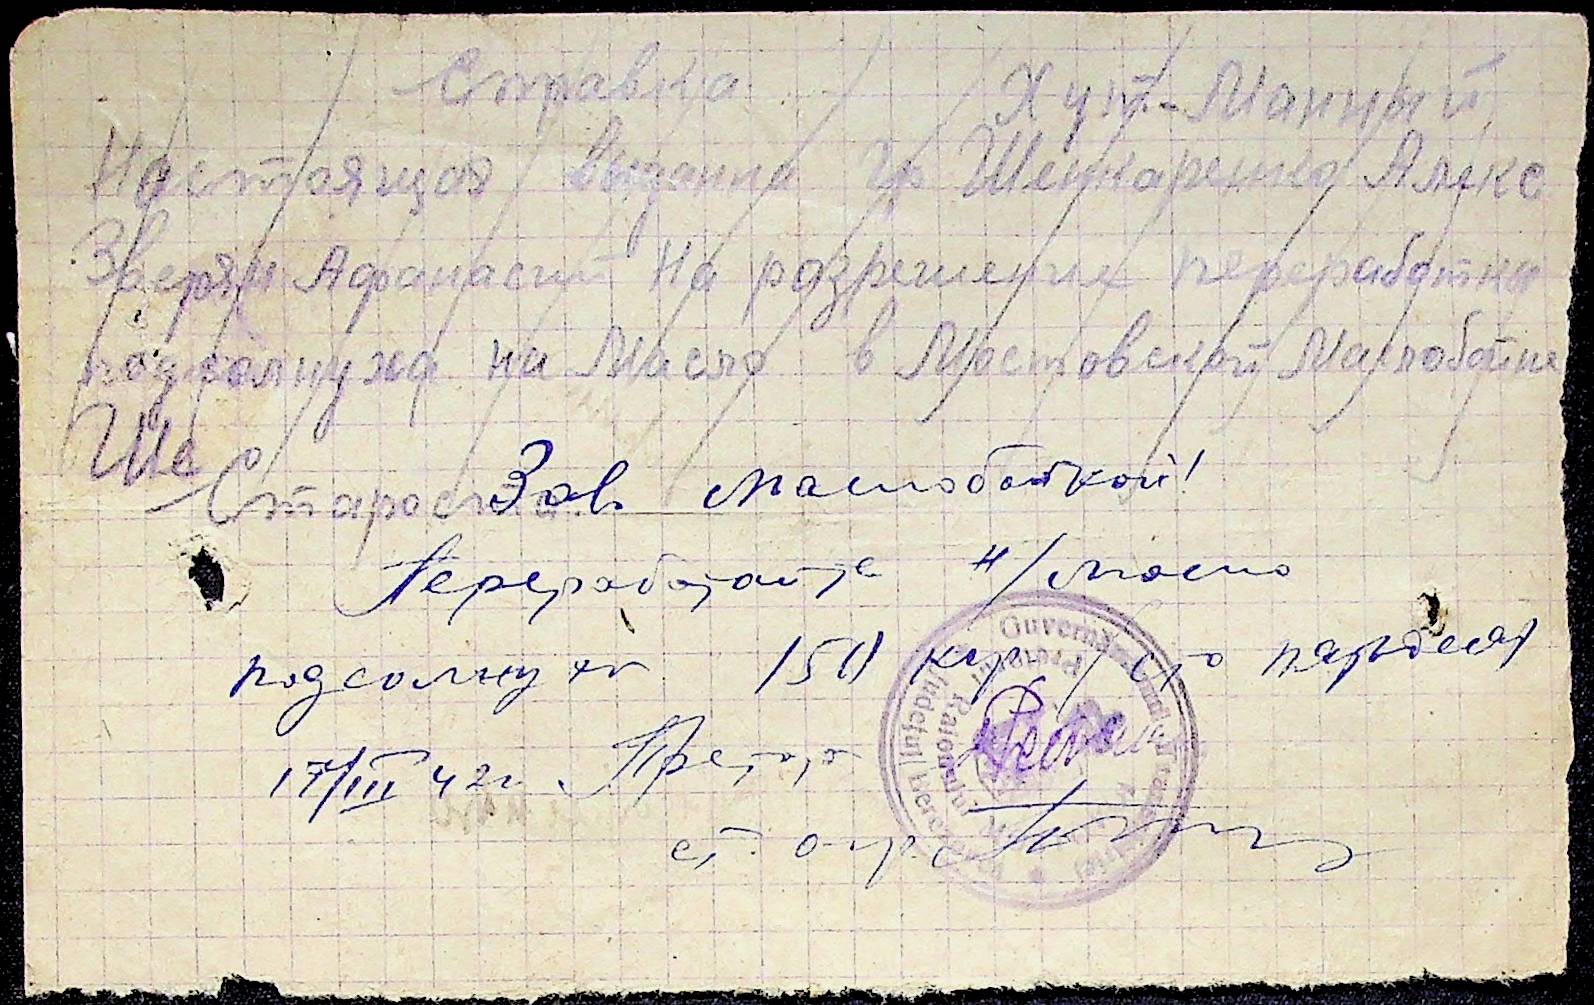 Справка Хут-Манный
Настоящая выдана Гр Шенкаренко Алекс
Зверян Афанасий На разрешение переработка
подсолнуха на Масло в Мостовской Маслобойне
Ше
Староста.
Зав маслобойкой!
Переработайте н/масло
подсолнух 150 кгр / сто пятьдесят
17/III 42г. Претор
ст. агр.
Guvernă
Pretura Raionului
Judeţul Berezovca